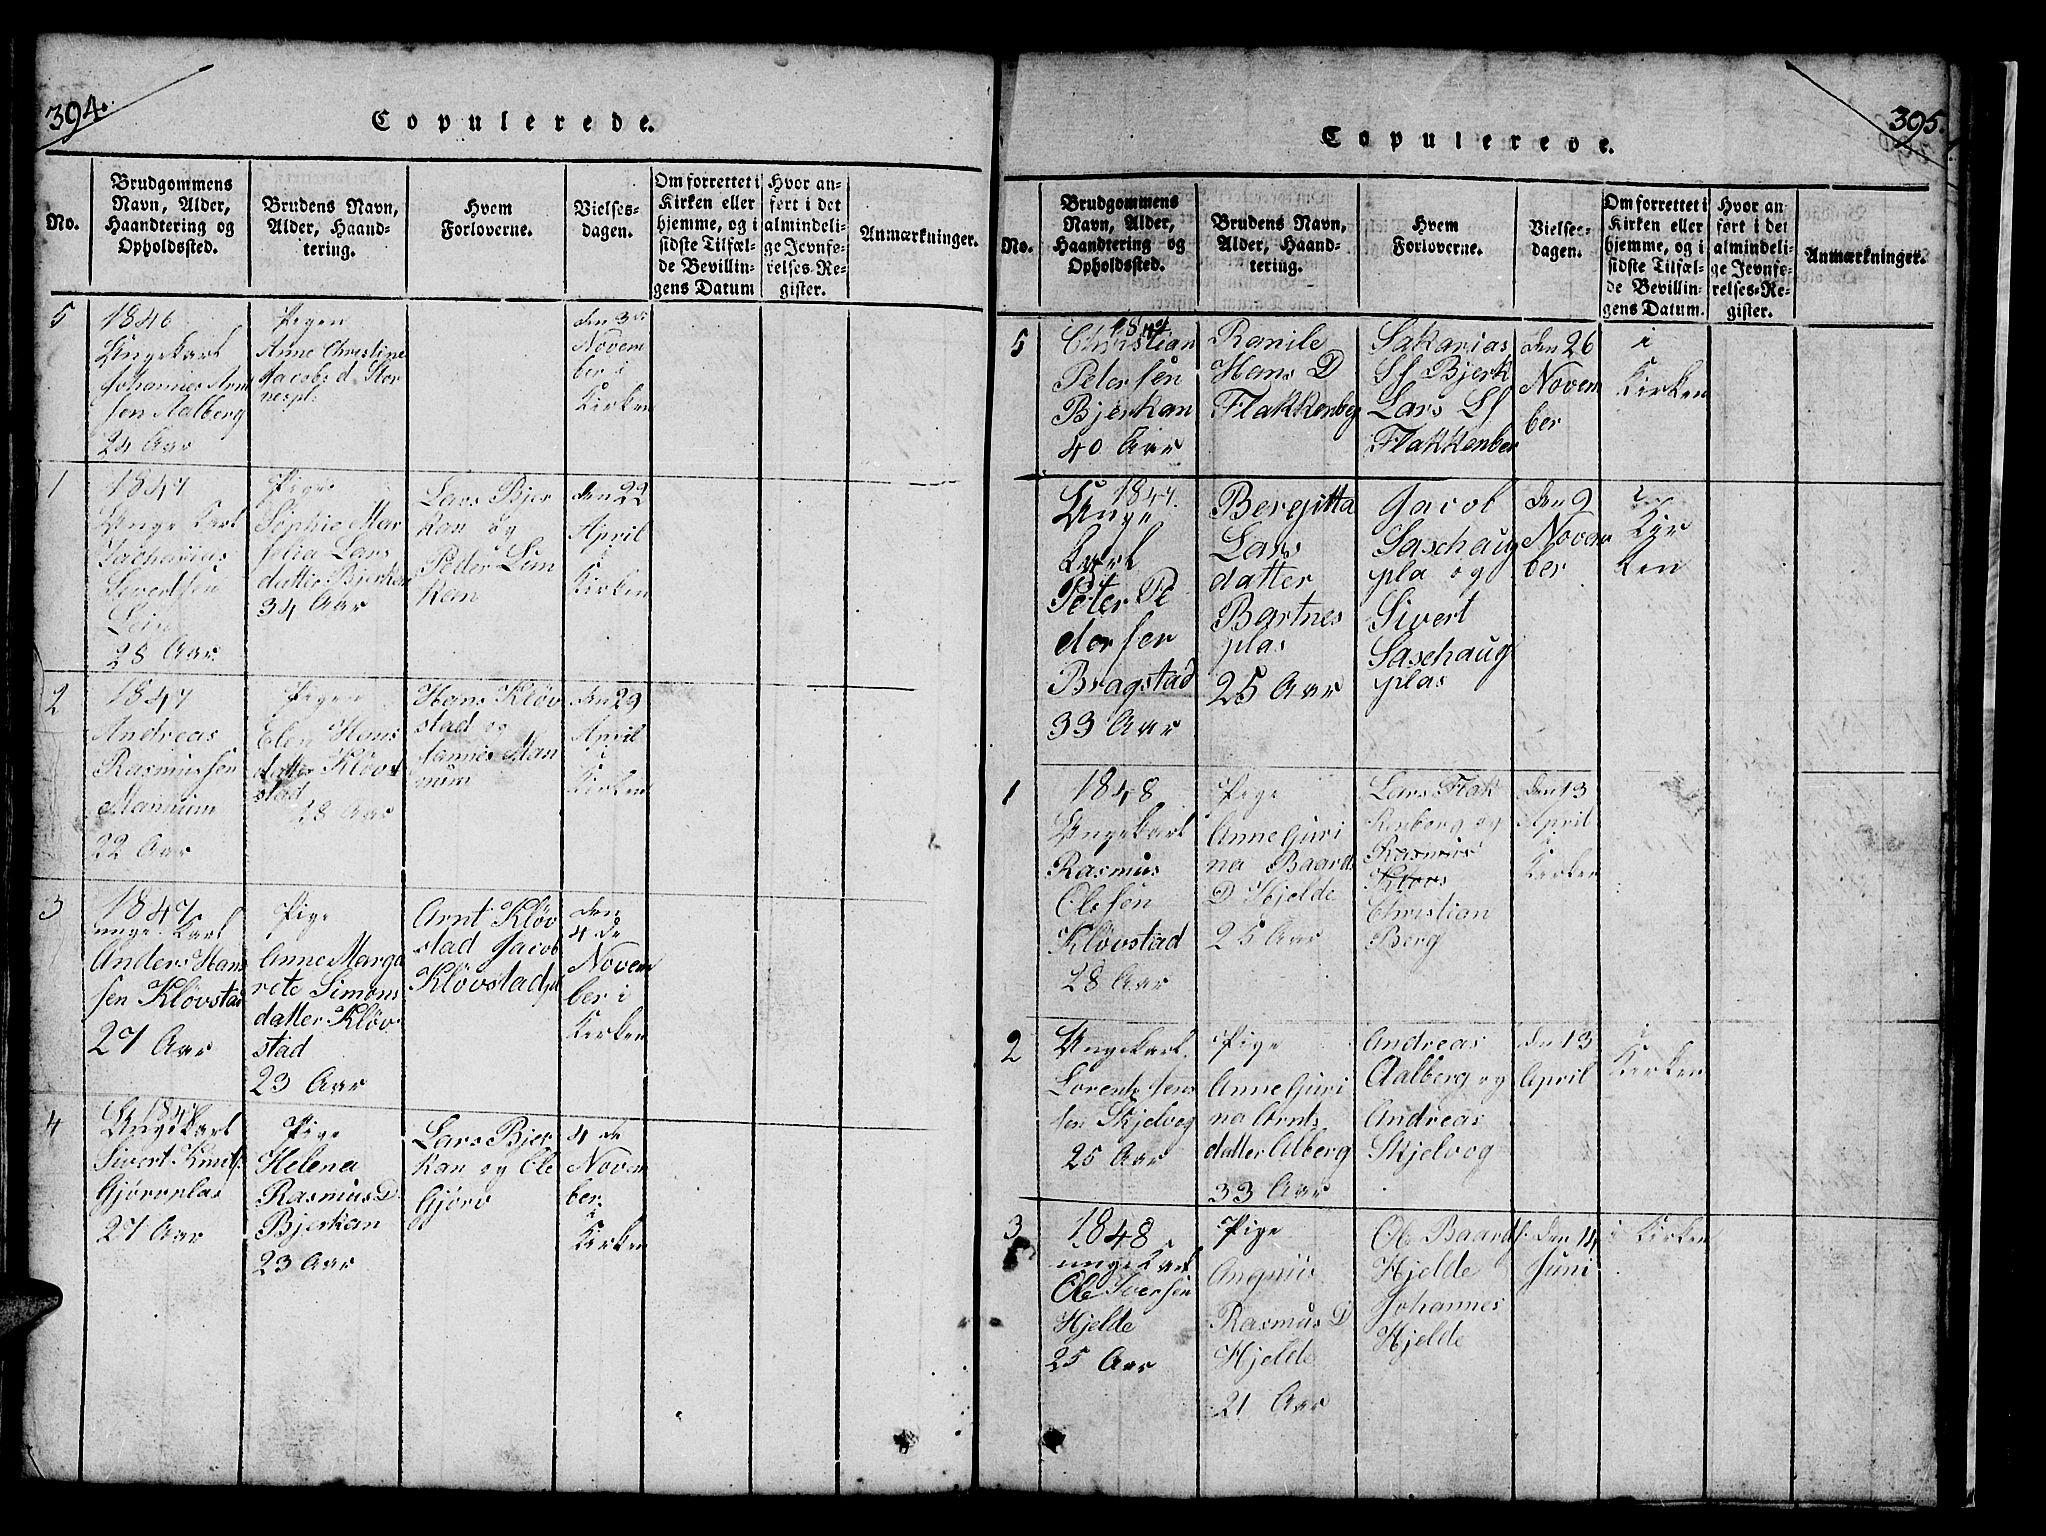 394.
Copulerede.
No.
Brudgommens
Navn, Alder,
Haandtering og
Opholdssted.
Brudens Navn,
Alder, Haand-
tering.
Hvem
Forloverne.
Vielses-
dagen.
Om forrettet i
Kirken eller
hjemme, og i
sidste Tilfæl-
de Bevillin-
gens Datum
Hvor an-
ført i det
almindeli-
ge Jevnfø-
relses-Re-
gister.
Anmærkninger.
5
1846
Ungekarl
Johannes Arn
sen Aalberg
24 Aar
Pigen
Anne Christine
Jacobs d. Stor
nespl.
den 3de
Novem
ber i
Kirken
1
1847
Unge Karl
Zacharias
Sivertsen
Lein
28 Aar.
Pige
Sophie Mar
Lars
datter Bjerkan
34 Aar
Lars Bjer
kan og
Peder Lein
kan
den 22
April
i
Kirken
2
1847
Andreas
Rasmussen
Manum
22 Aar
Pigen
Elen Hans
datter Kløv
stad
28 Aar
Hans Kløv
stad og
Hannes Man
num
den 29
April
i
Kirken
3
1847
unge Karl
Anders Han
sen Kløvstad
27 Aar
Pige
Anne Marga
rete Simons
datter Kløv
stad
23 Aar
Arnt Kløv
stad Jacob
Kløvstadpl
den
4 de
Novem
ber i
Kirken
4
1847
Ungekarl
Sivert Knuts.
Gjørvplas
27 Aar
Pige
Helena
Rasmus D.
Bjerkan
23 Aar
Lars Bjer
kan og Ole
Gjørv
4 de
Novem
ber
i
Kirken
395.
Copulerede.
No.
Brudgommens
Navn, Alder,
Haandtering og
Opholdssted.
Brudens Navn,
Alder, Haand-
tering.
Hvem
Forloverne.
Vielses-
dagen.
Om forrettet i
Kirken eller
hjemme, og i
sidste Tilfæl-
de Bevillin-
gens Datum.
Hvor an-
ført i det
almindeli-
ge Jevnfø-
relses-Re-
gister.
Anmærkninger.
5
1847
Christian
Petersen
Bjerkan
40 Aar
Ranile
Hans D
Flakkenberg
Sakarias
Lf Bjerk
Lars Lf
Flakkenber
den 26
Novem
ber
i
Kirken
1847.
Unge
Karl
Peter Pe
dersen
Bragstad
33 Aar
Beregitta
Lars
datter
Bartnes
plas
25 Aar
Jacob
Saschaug
pla og
Sivert
Saschaug
plas
den 9
Novem
ber
i
Kir
ken
1
1848
Ungekarl
Rasmus
Olesen
Kløvstad
28 Aar
Pige
Anne Guri
na Baards
D Hjelde
25 Aar
Lars Flak
kenberg og
Rasmus
Kløvs
Christian
Berg
den 13
April
i
Kirken
2
Ungekarl.
Lorents Jens
sen Skjelvog
25 Aar
Pige
Anne Guri
na Arnts
datter Alberg
33 Aar
Andreas
Aalberg og
Andreas
Skjelvog
den 13
April
i
Kirken
3
1848
unge Karl
Ole Iversen
Hjelde
25 Aar
Pige
Rasmus D
Hjelde
21 Aar
Ole Baards.
Hjelde
Johannes
Hjelde
Den 14
Juni
i Kirken